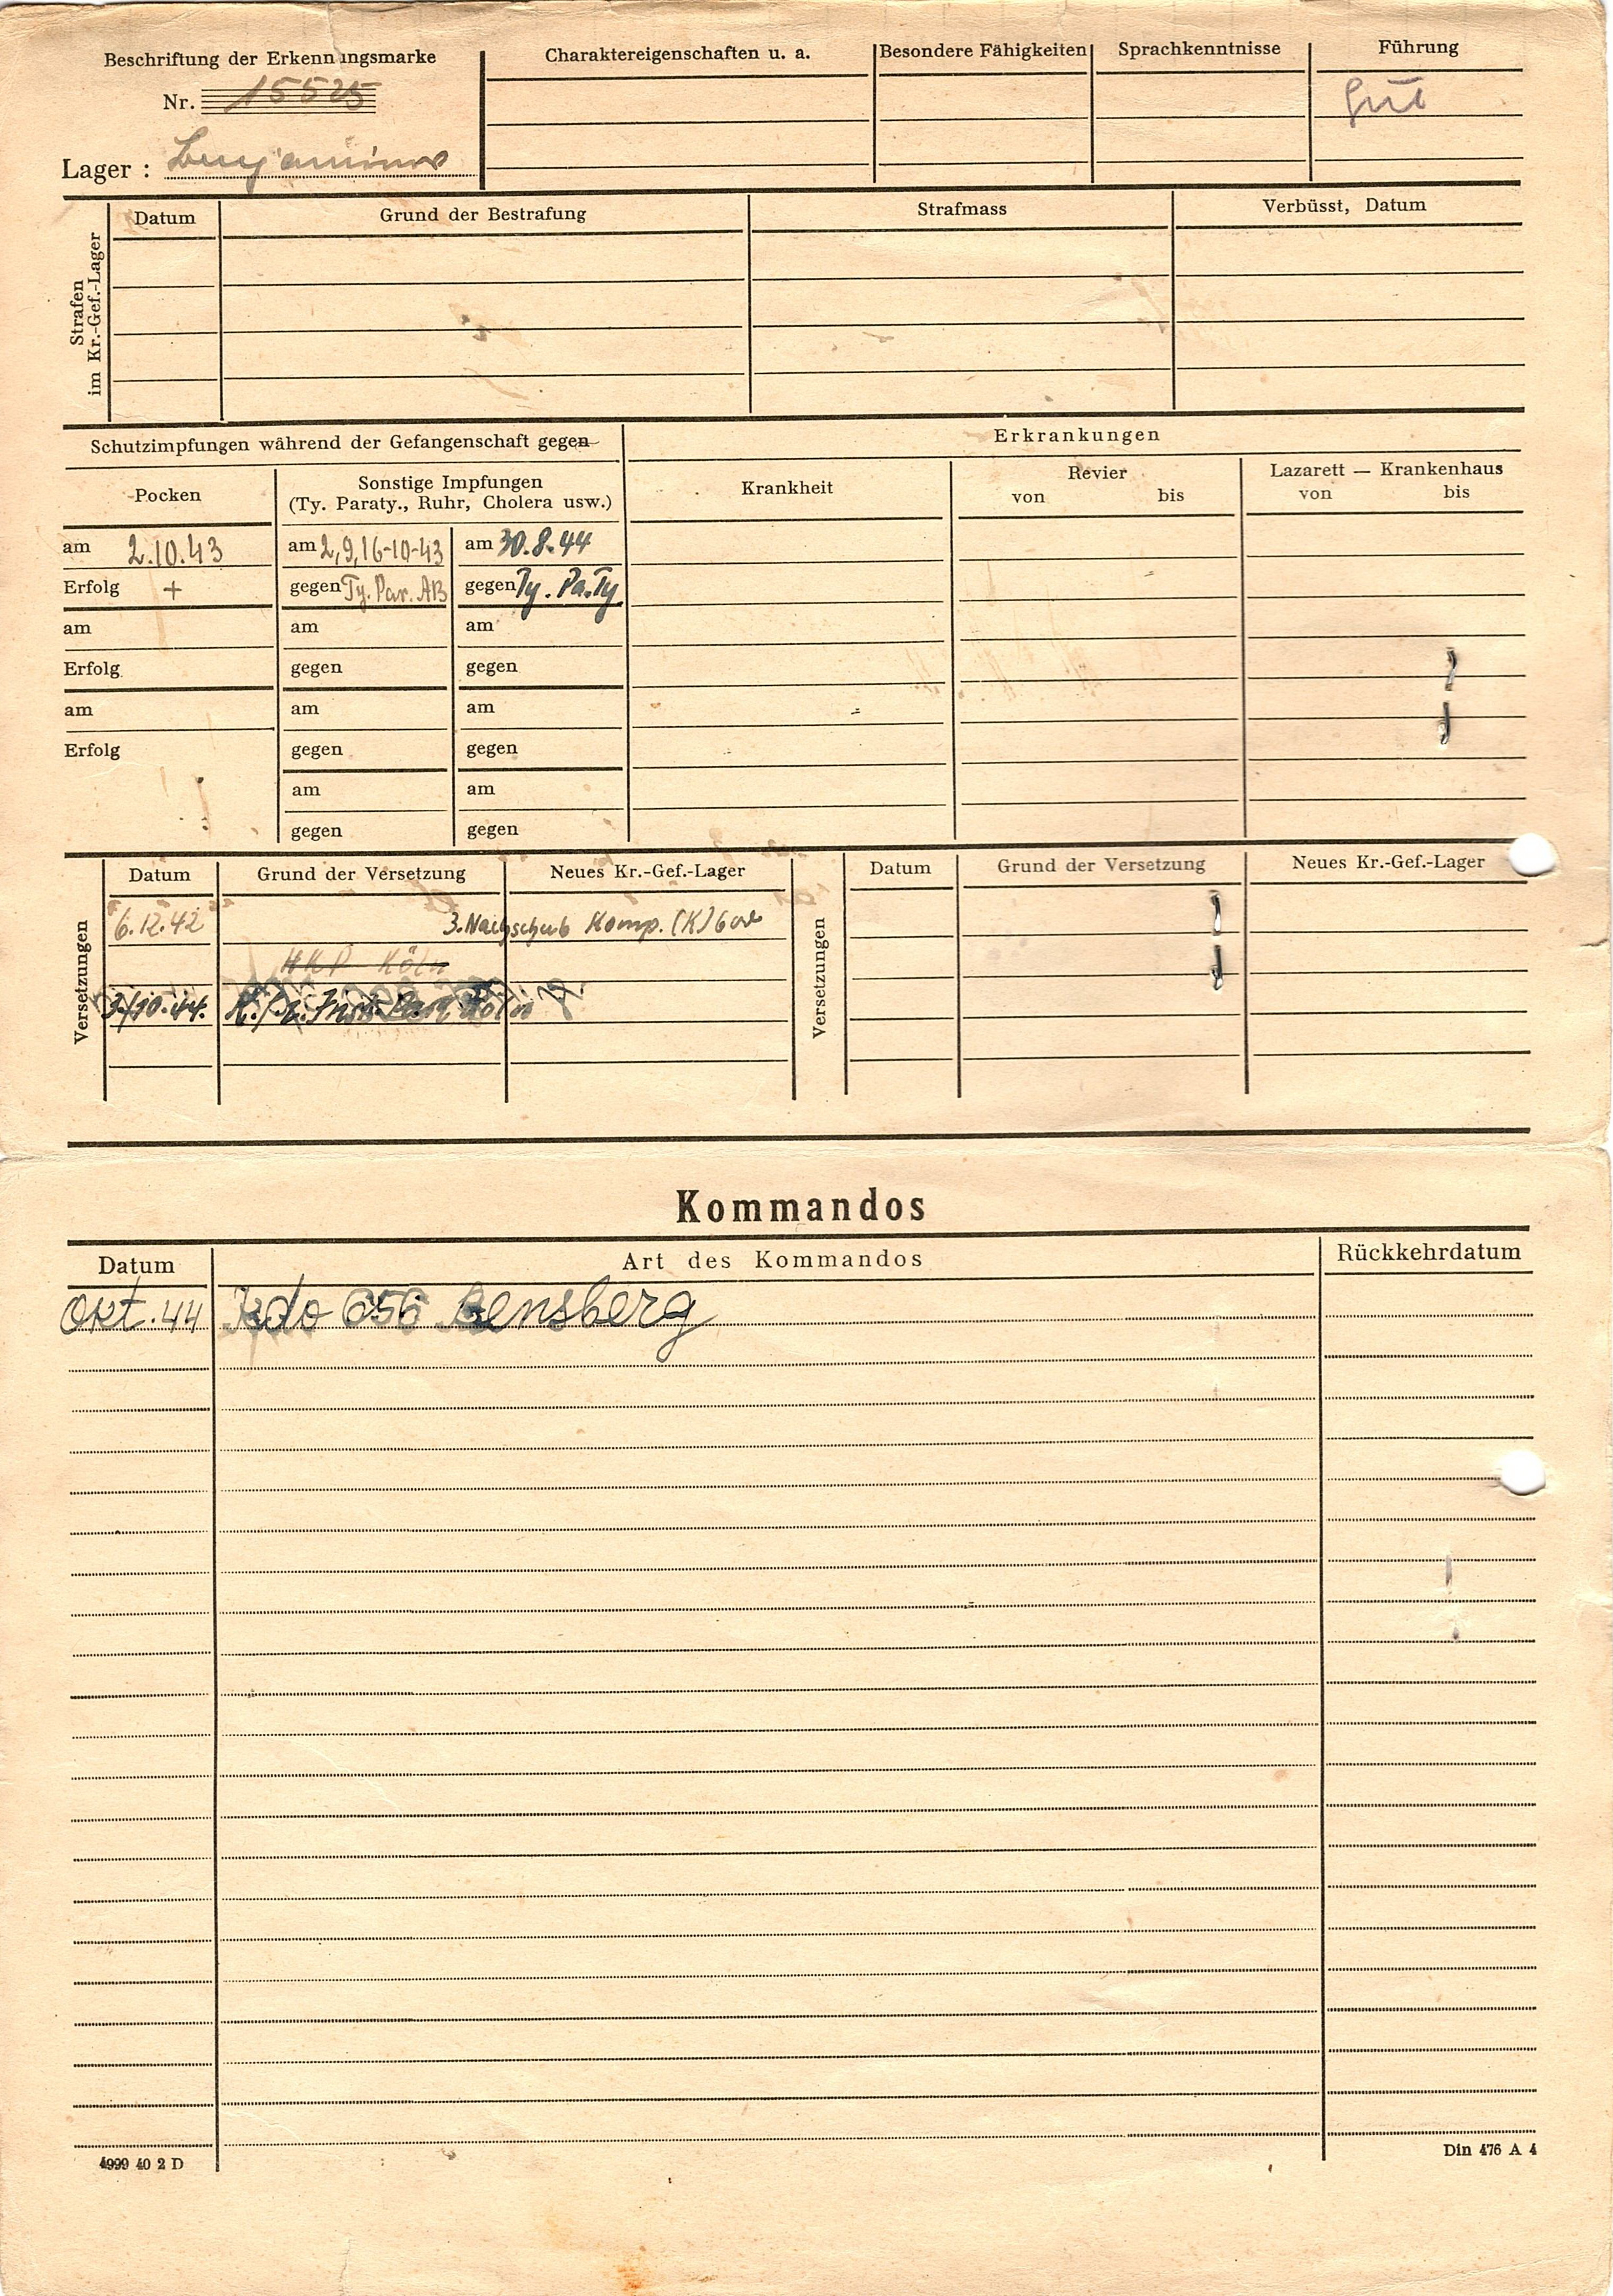 Beschriftung der Erkennungsmarke
Charaktereigenschaften u. a.
Besondere Fähigkeiten
Sprachkenntnisse
Führung
Nr. 15525
gut
Lager :
Strafen im Kr.-Gef.-Lager
Datum
Grund der Bestrafung
Strafmass
Verbüsst, Datum
Schutzimpfungen während der Gefangenschaft gegen
Erkrankungen
Pocken
Sonstige Impfungen
(Ty. Paraty., Ruhr, Cholera usw.)
Krankheit
Revier
von bis
Lazarett — Krankenhaus
von bis
am 2.10.43 am 2,9,16-10-43 am 30.8.44
Erfolg + gegen Ty. Par. AB gegen Ty. Pa.Ty
am am am
Erfolg gegen gegen
am am am
Erfolg gegen gegen
am am
gegen gegen
Versetzungen
Datum
Grund der Versetzung
Neues Kr.-Gef.-Lager
Versetzungen
Datum
Grund der Versetzung
Neues Kr.-Gef.-Lager
6.12.42 3. Nachschub Komp. (K)
HKP Köln
10.44. Köln
Kommandos
Datum Art des Kommandos Rückkehrdatum
Okt. 44 Kdo 656 Bensberg
4999 40 2 D
Din 476 A 4